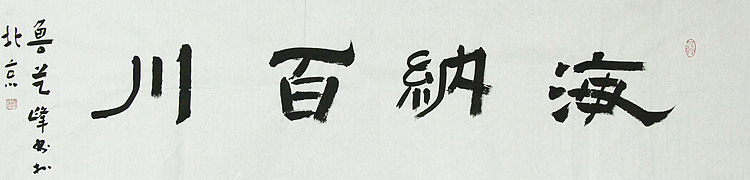 海納百川
魯芝峰書於
北京